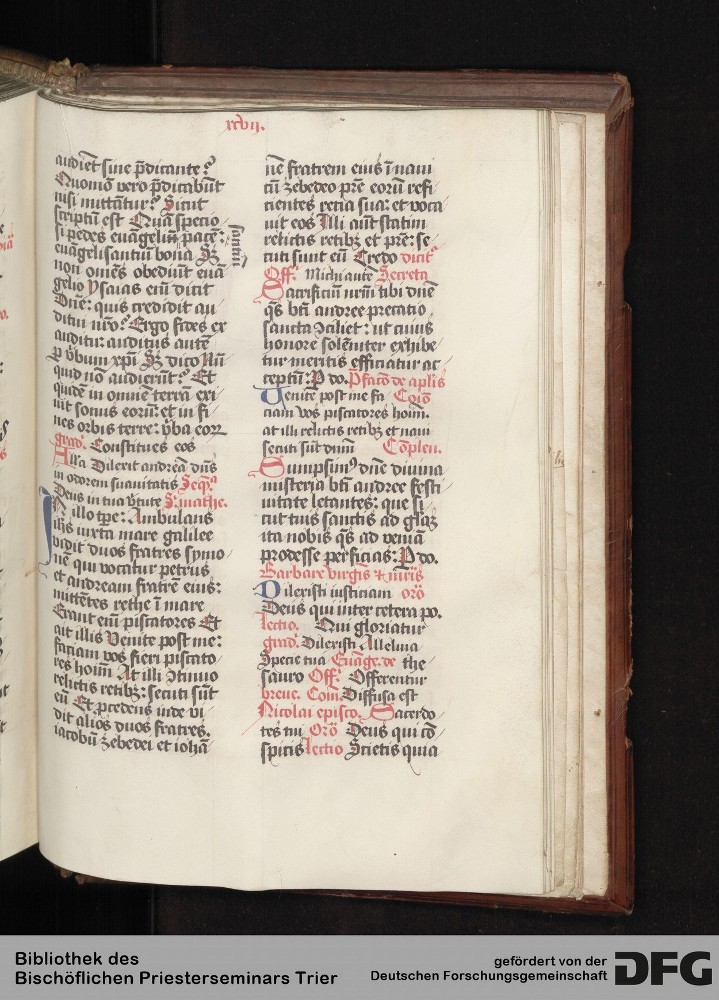 xcvii.
audiet̄ sine p̄dicante?
Quomō vero p̄dicabūt
nisi mittātur? Sicut
scriptū est Quā specio
si pedes euāgeliȥ̄ pacē:
euāgelisantiū bona Sꝫ
non om̄es obediūt euā
gelio ysaias eīū dicit
Dn̄e: quis credidit au
ditui nr̄o? Ergo fides ex
auditu: auditus autē
ꝑ v̄bum xp̄i Sꝫ dico Nū
quid nō audierūt? Et
quidē in omnē terrā exi
uit sonus eorū: et in fi
nes orbis terre: v̄ba eoꝝ
grad̄. Constitues eos
Alla Dilexit andreā dn̄s
in odorem suauitatis Seq̄ᵃ
Deus in tua v̄tute S: mathe.
In illo tp̄e: Ambulans
ih̄s iuxta mare galilee
vidit duos fratres symo
nē qui vocatur petrus
et andream fratrē eius:
mittētes rethe ī mare
Erant eīū piscatores Et
ait illis Venite post me:
faciam vos fieri piscato
res hoīm At illi ↄtinuo
relictis retibꝫ: secuti sūt
eū Et ꝓcedens inde vi
dit alios duos fratres.
iacobū zebedei et iohā
nē fratrem eius ī naui
cū zebedeo pr̄e eorū refi
cientes recia sua: et voca
uit eos Illi aūt statim
relictis retibꝫ et pr̄e: se
cuti sunt eū Credo dicitᵒ
Off: Michi autē Secreta
Sacrificiū nr̄m tibi dn̄e
q̄s bt̄i andree precatio
sancta ↄciliet: ut cuius
honore solēniter exhibe
tur meritis efficiatur ac
ceptū: P do. P̄facō de aplīs
Venite post me fa Coīō
ciam vos piscatores hoīm.
at illi relictis retibꝫ et naui
secuti sūt dnm̄ Cōplen.
Sumpsimᵒ dn̄e diuina
misteria bt̄i andree festi
uitate letantes: que si
cut tuis sanctis ad gl̄aꝫ
ita nobis q̄s ad veniā
prodesse perficias: P do.
Barbare virgīs ⁊ mr̄is
Dilexisti iusticiam orō
Deus qui inter cetera po.
lectio. Qui gloriatur
grad̄. Dilexisti Alleluia
Specie tua Euāge. de the
sauro Off: Offerentur
breue. Coīn Diffusa est
Nicolai episco. Sacerdo
tes tui Orō Deus qui cō
spicis lectio Scietis quia
Bibliothek des
Bischöflichen Priesterseminars Trier
gefördert von der
Deutschen Forschungsgemeinschaft
DFG